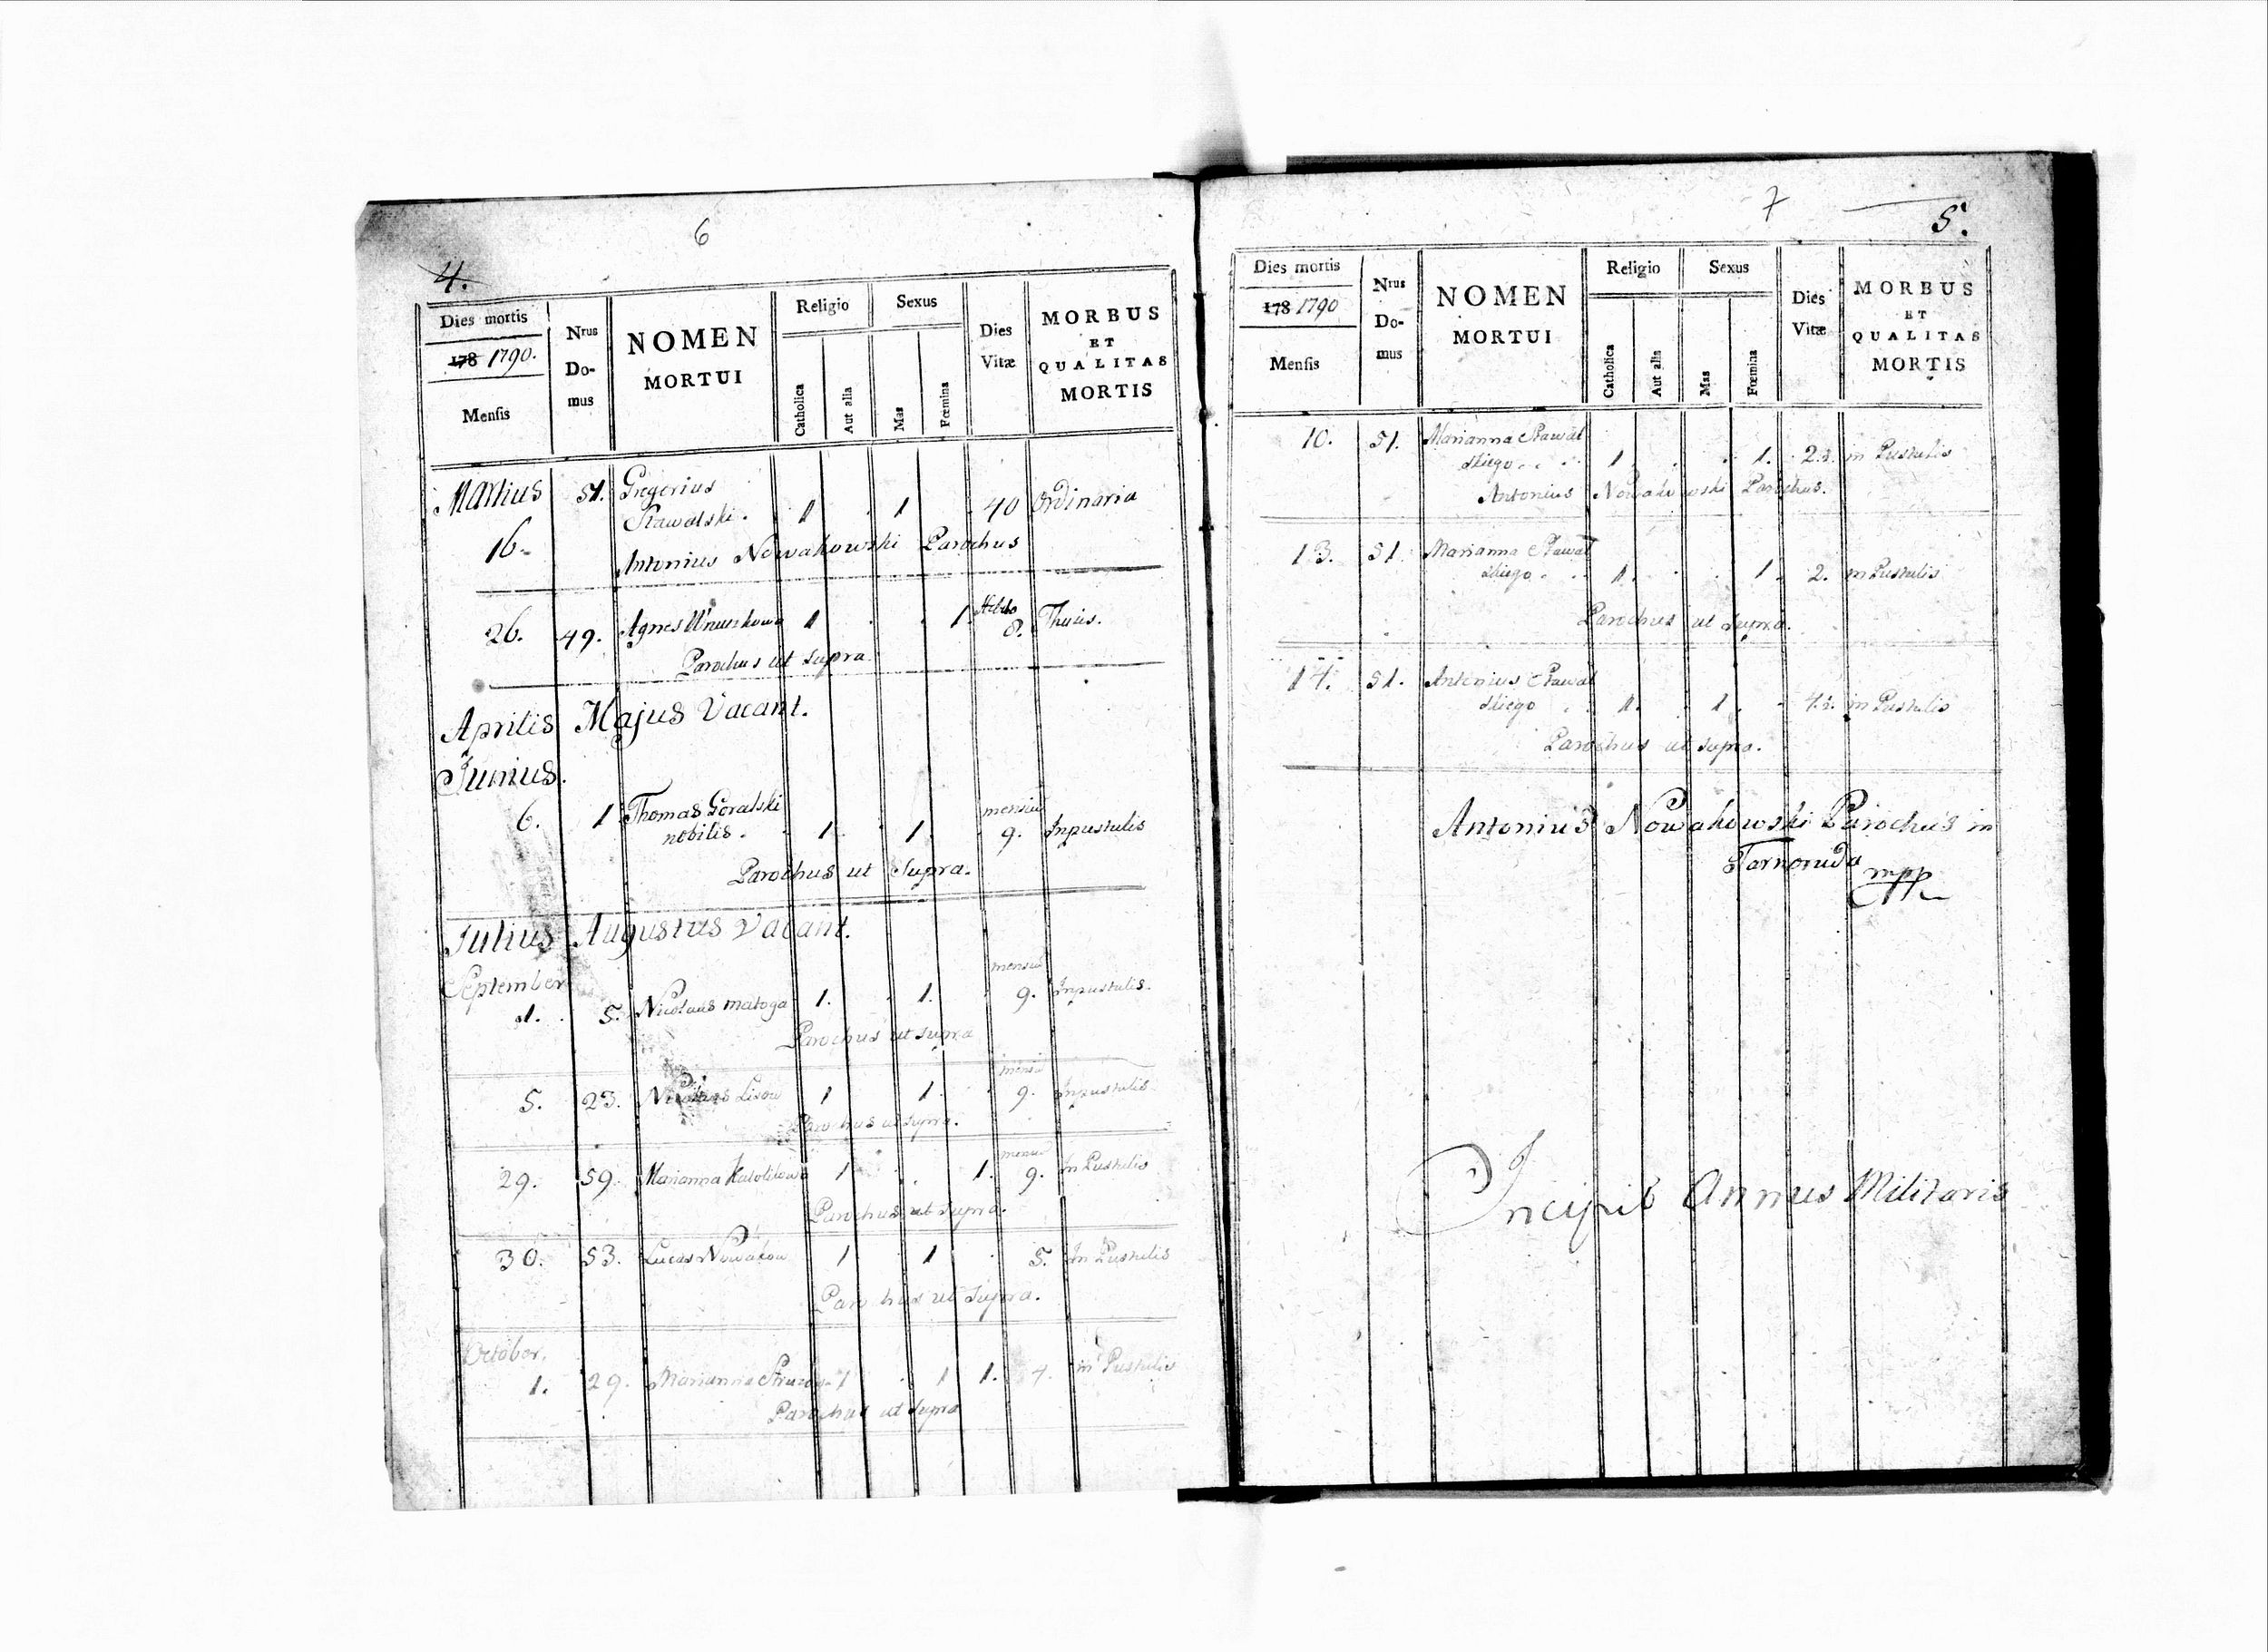 6
4.
Dies mortis
178 1790.
Mensis
Nrus
Do-
mus
NOMEN
MORTUI
Religio
Catholica
Aut alia
Sexus
Mas
Fœmina
Dies
Vitæ
MORBUS
ET
QUALITAS
MORTIS
Martius 51. Gregorius
16. 1 1 40 Ordinaria
Antonius Nowakowski Parochus
26. 49. Agnes 1 1. 8. Thusis.
Parochus ut Supra
Aprilis Majus Vacant.
Junius.
6. 1 Thomas Goralski mensiu
nobilis. 1. 1. 9. Inpustulis
Parochus ut Supra.
Julius Augustus Vacant.
September mensiu
1. 5. Nicolaus Matoga 1. 1. 9. Inpustulis.
Parochus ut Supra
mensiu
5. 23. Nicolaus Lisow 1 1. 9. Inpustulis
Parochus ut Supra.
mensiu
29. 59. Marianna 1 1. 9. In Pustulis
Parochus ut Supra.
30. 53. Lucas 1 1 5. In Pustulis
Parochus ut Supra.
October.
1. 29. Marianna 1 1 1. 4. in Pustulis
Parochus ut Supra
7
5.
Dies mortis
178 1790
Mensis
Nrus
Do-
mus
NOMEN
MORTUI
Religio
Catholica
Aut alia
Sexus
Mas
Fœmina
Dies
Vitæ
MORBUS
ET
QUALITAS
MORTIS
10. 51. Marianna
skiego 1 1. in Pustulis
Antonius Nowakowski Parochus.
13. 51. Marianna
skiego 1. 1. 2. in Pustulis
Parochus ut Supra.
14. 51. Antonius
skiego 1. 1. in Pustulis
Parochus ut Supra.
Antonius Nowakowski Parochus in
Tarnoruda
mpp
Incipit Annus Militaris